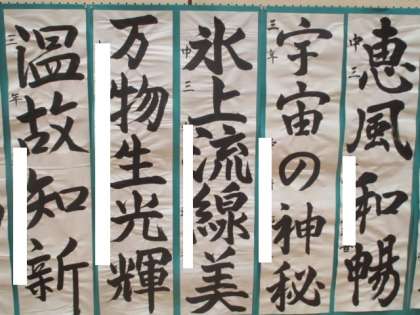 恵風和暢
中三
宇宙の神秘
三年
氷上流線美
中三
万物生光輝
中三
温故知新
三年